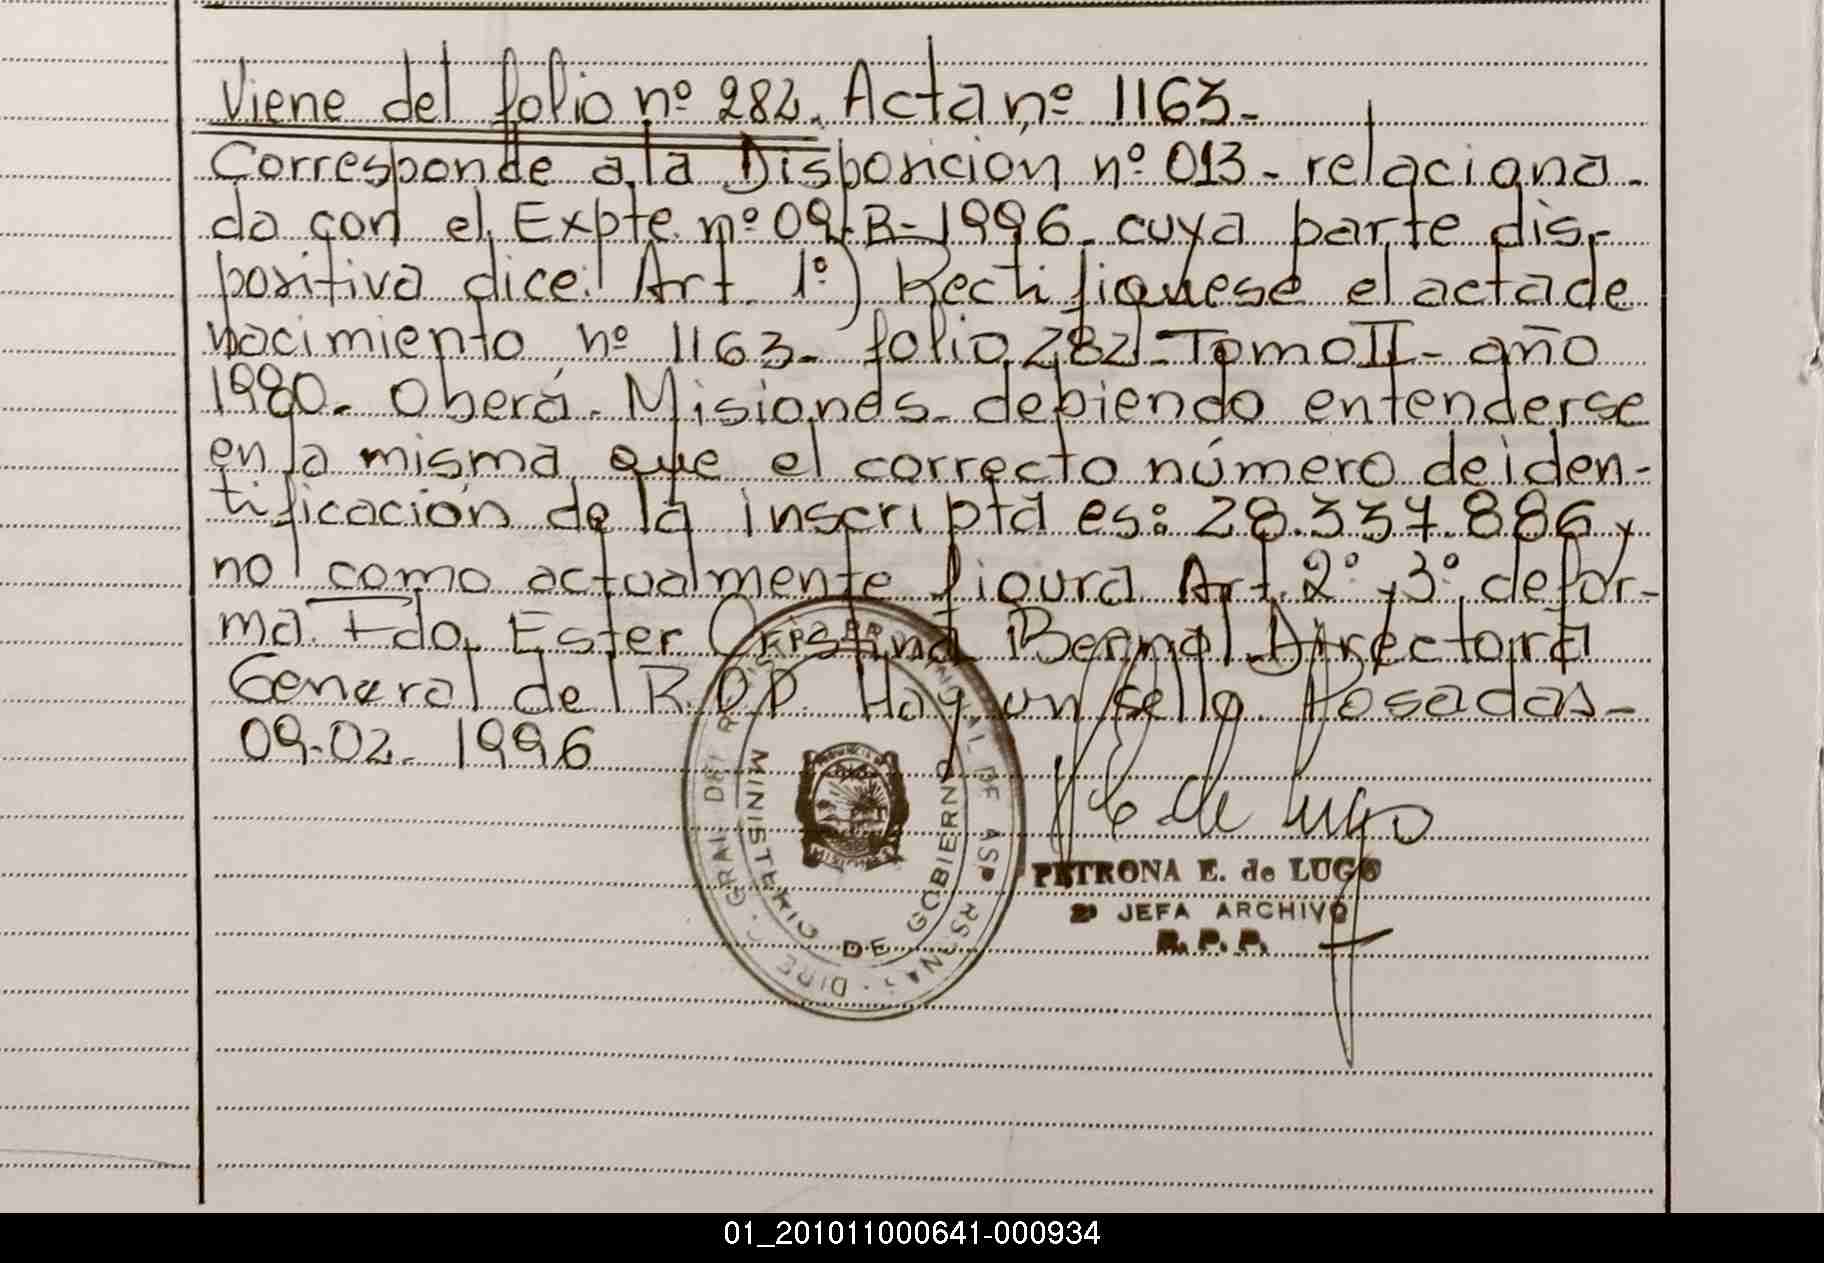 Viene del folio nº 282. Acta nº 1163.-
Corresponde a la Disposicion nº 013- relaciona-
da con el Expte. nº 09-B-1996- cuya parte dis-
positiva dice: Art. 1º) Rectifiquese el acta de
nacimiento nº 1163- folio 282- Tomo II- año
1980- Oberá- Misiones- debiendo entenderse
en la misma que el correcto número de iden-
tificación de la inscripta es: 28.337.886 y
no como actualmente figura Art. 2º y 3º de for-
ma. Fdo. Ester Cristina Bernal. Directora
General del R.P.P. Hay un sello. Posadas-
09-02-1996
MINISTERIO DE GOBIERNO
PROVINCIA DE
MISIONES
P E de Lugo
PETRONA E. de LUGO
2ª JEFA ARCHIVO
R. P. P.
01_201011000641-000934